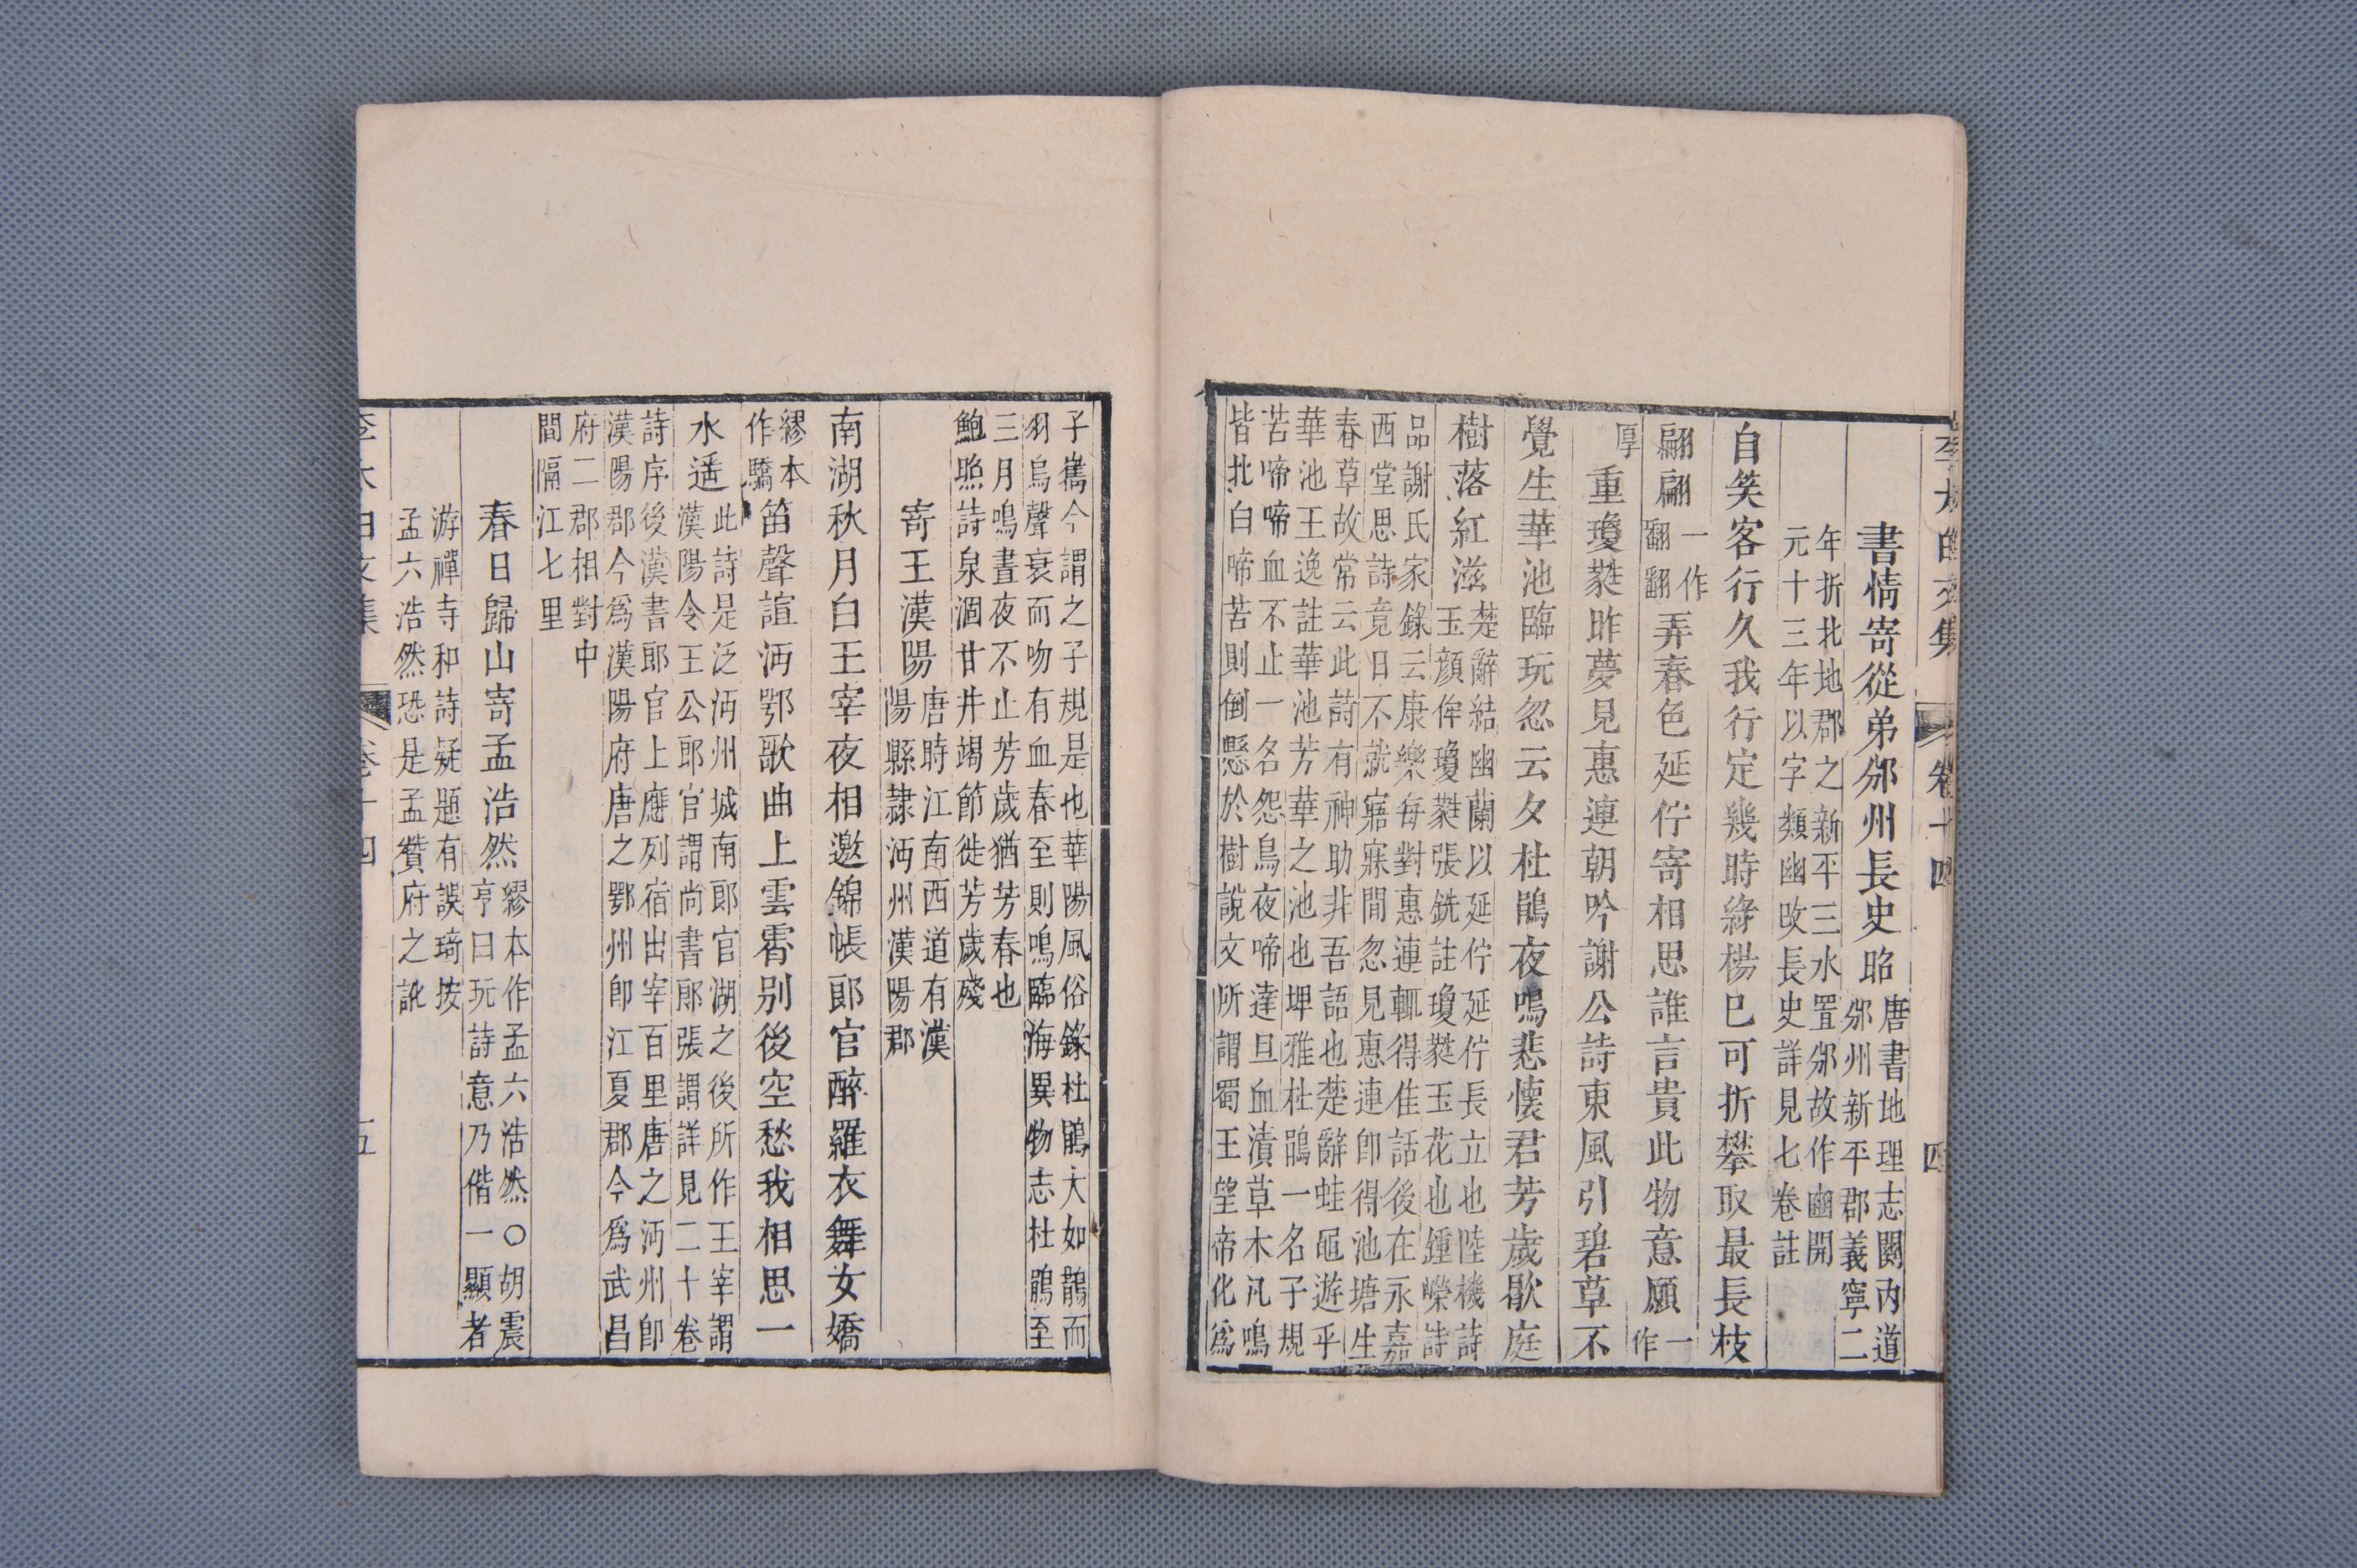 李太白文集
卷十四
四
書情寄從弟邠州長史昭
唐書地理志關內道
邠州新平郡義寧二
年析北地郡之新平三水置邠故作豳開
元十三年以字類幽改長史詳見七卷註
自笑客行久我行定幾時綠楊已可折攀取最長枝
翩翩
一作
翻翻
弄春色延佇寄相思誰言貴此物意願
一
作
厚
重瓊蕤昨夢見惠連朝吟謝公詩東風引碧草不
覺生華池臨玩忽云夕杜鵑夜鳴悲懷君芳歲歇庭
樹落紅滋
楚辭結幽蘭以延佇延佇長立也陸機詩
玉顔侔瓊蕤張銑註瓊蕤玉花也鍾嶸詩
品謝氏家錄云康樂每對惠連輒得佳話後在永嘉
西堂思詩竟日不就寤寐間忽見惠連卽得池塘生
春草故常云此詩有神助非吾語也楚辭蛙黽游乎
華池王逸註華池芳華之池也埤雅杜鵑一名子規
苦啼啼血不止一名怨鳥夜啼達旦血漬草木凡鳴
皆北向啼苦則倒懸於樹說文所謂蜀王望帝化爲
子雟今謂之子規是也華陽風俗錄杜鵑大如鵲而
羽烏聲哀而吻有血春至則鳴臨海異物志杜鵑至
三月鳴晝夜不止芳歲猶芳春也
鮑照詩泉涸甘井竭節徙芳歲殘
寄王漢陽
唐時江南西道有漢
陽縣隷沔州漢陽郡
南湖秋月白王宰夜相邀錦帳郎官醉羅衣舞女嬌
繆本
作驕
笛聲諠沔鄂歌曲上雲霄別後空愁我相思一
水遥
此詩是泛沔州城南郎官湖之後所作王宰謂
漢陽令王公郎官謂尚書郎張謂詳見二十卷
詩序後漢書郎官上應列宿出宰百里唐之沔州卽
漢陽郡今爲漢陽府唐之鄂州卽江夏郡今爲武昌
府二郡相對中
間隔江七里
春日歸山寄孟浩然
繆本作孟六浩然〇胡震
亨曰玩詩意乃偕一顯者
游禪寺和詩疑題有誤琦按
孟六浩然恐是孟贊府之訛
李太白文集
卷十四
五